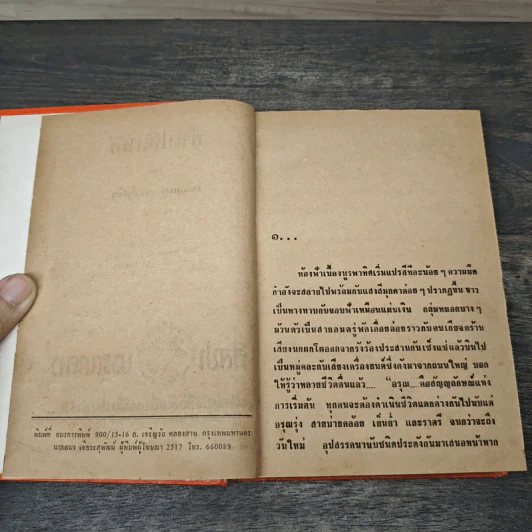 พิมพ์ที่ อมรการพิมพ์ 900/15-16 ถ. เจริญรัถ คลองสาน กรุงเทพมหานคร
2517 โทร. 660089
๑...
ท้องฟ้าเบื้องบูรพาทิศเริ่มแปรสีทีละน้อย ๆ ความมืด
กำลังจะสลายไปพร้อมกับแสงสีมุกค่อย ๆ ปรากฏขึ้น ขาว
เป็นทางทาบกับขอบฟ้าเหมือนแผ่นเงิน กลุ่มหมอกบาง ๆ
ม้วนตัวเป็นสายลมตรู่พัดเอื่อยอ่อยราวกับคนเกียจคร้าน
เสียงนกผกโผออกจากรังร้องประสานกันเซ็งแซ่แล้วบินไป
เป็นหมู่คละกับเสียงเครื่องยนต์ซึ่งดังมาจากถนนใหญ่ บอก
ให้รู้ว่าหลายชีวิตตื่นแล้ว.... “อรุณ....คือสัญญลักษณ์แห่ง
การเริ่มต้น ทุกคนจะต้องดำเนินชีวิตแตกต่างกันไปนับแต่
อรุณรุ่ง สายบ่ายคล้อย เย็นย่ำ และราตรี จนกว่าจะถึง
วันใหม่ อุปสรรคนานับชนิดประดังกันมาเสนอหน้าพาก